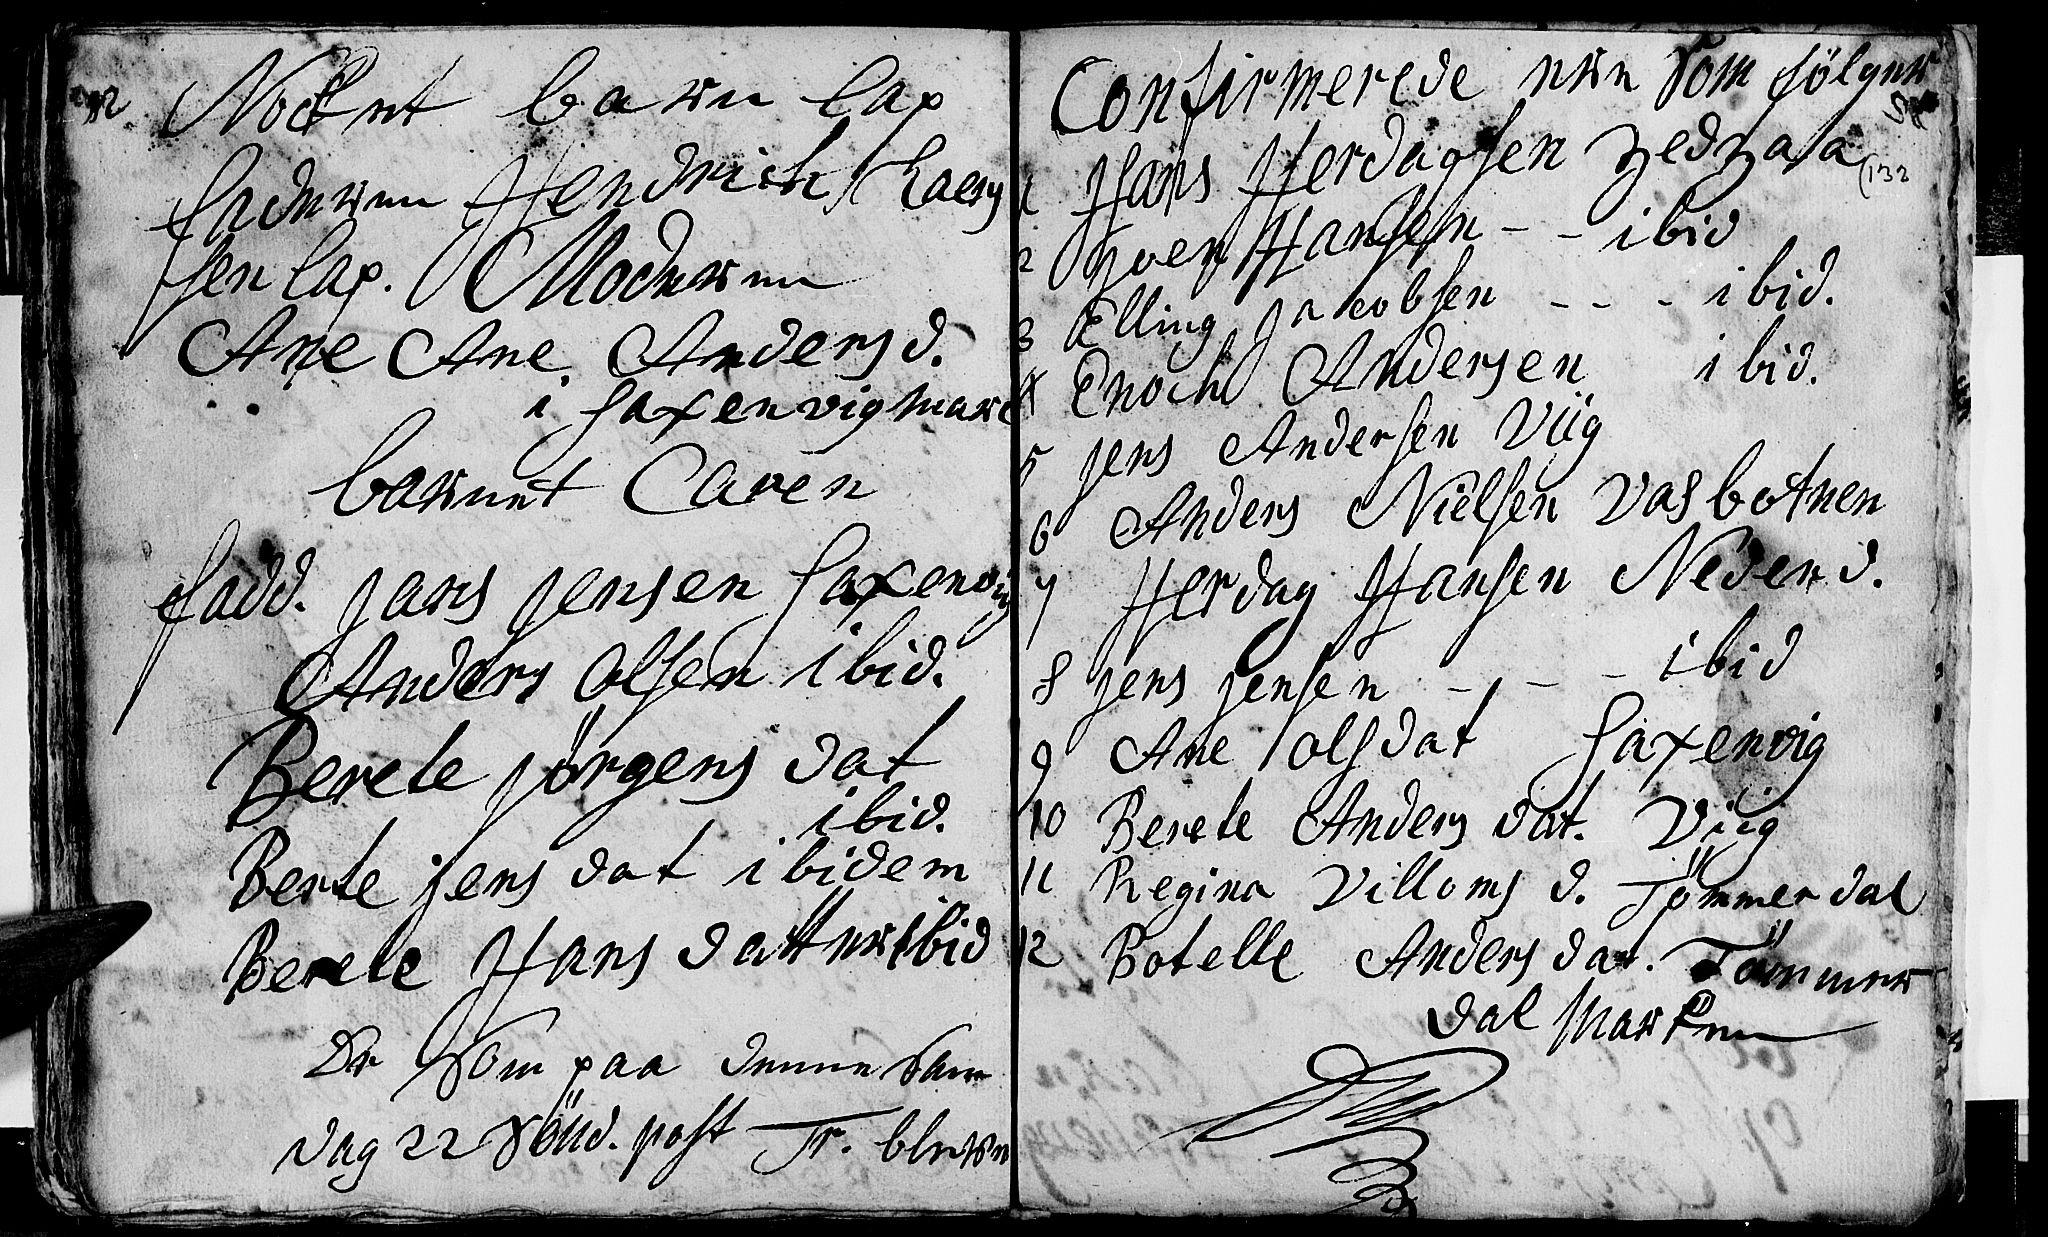 Nock et barn lap
faderen Hendrich Larss
sen lap. Moderen
Ane Ane Andersd.
i Saxenvigmarc
barnet Caren
fadd. Jans Jensen Saxenvig
Anders Olsen ibid.
Berete Jörgens dat
ibid.
Berte Jens dat ibidem
Berete Hans datter ibid
De Som paa denne Sam
dag 22 Sönd. post Tr. bleven
Confirmerede ere Som fölger
132
1 Hans Herdagsen
2 Joen Hansen - - ibid
3 Elling Jacobsen - - - ibid.
4 Enoch Andersen ibid.
5 Jens Andersen Viig
6 Anders Nielsen Vasbotnen
7 Herdag Hansen Nederd.
8 Jens Jensen - - - - ibid
9 Ane Olsdat Saxenvig
10 Berete Anders dat. Viig
11 Regina Villoms d. Tömmerdal
12 Botelle Anders dat. Tömmer
dal Marken